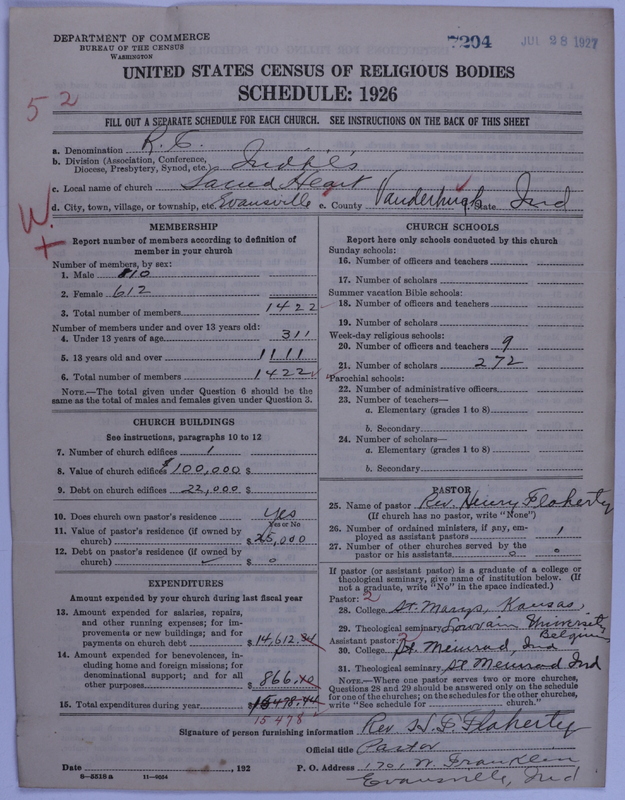 DEPARTMENT OF COMMERCE
BUREAU OF THE CENSUS
WASHINGTON
7204 JUL 28 1927
UNITED STATES CENSUS OF RELIGIOUS BODIES
SCHEDULE: 1926
52
FILL OUT A SEPARATE SCHEDULE FOR EACH CHURCH. SEE INSTRUCTIONS ON THE BACK OF THIS SHEET
a. Denomination R.C.
b. Division (Association, Conference, Diocese, Presbytery, Synod, etc.) Ind'pl's
c. Local name of church Sacred Heart
d. City, town, village, or township, etc. Evansville e. County Vanderburgh State Ind
W.
+
MEMBERSHIP
Report number of members according to definition of
member in your church
Number of members, by sex:
1. Male 810
2. Female 612
3. Total number of members 1422
Number of members under and over 13 years old:
4. Under 13 years of age 311
5. 13 years old and over 1111
6. Total number of members 1422
NOTE.—The total given under Question 6 should be the
same as the total of males and females given under Question 3.
CHURCH BUILDINGS
See instructions, paragraphs 10 to 12
7. Number of church edifices 1
8. Value of church edifices $100,000 $
9. Debt on church edifices 22,000 $
10. Does church own pastor's residence Yes
Yes or No
11. Value of pastor's residence (if owned by
church) $25,000
12. Debt on pastor's residence (if owned by
church) $ 0
EXPENDITURES
Amount expended by your church during last fiscal year
13. Amount expended for salaries, repairs,
and other running expenses; for im-
provements or new buildings; and for
payments on church debt $14,612.34
14. Amount expended for benevolences, in-
cluding home and foreign missions; for
denominational support; and for all
other purposes $866.10
15. Total expenditures during year $15478.44
15478
CHURCH SCHOOLS
Report here only schools conducted by this church
Sunday schools:
16. Number of officers and teachers
17. Number of scholars
Summer vacation Bible schools:
18. Number of officers and teachers
19. Number of scholars
Week-day religious schools:
20. Number of officers and teachers 9
21. Number of scholars 272
Parochial schools:
22. Number of administrative officers
23. Number of teachers—
a. Elementary (grades 1 to 8)
b. Secondary
24. Number of scholars—
a. Elementary (grades 1 to 8)
b. Secondary
PASTOR
25. Name of pastor Rev. Henry Flaherty
(If church has no pastor, write "None")
26. Number of ordained ministers, if any, em-
ployed as assistant pastors 1
27. Number of other churches served by the
pastor or his assistants 0 0
If pastor (or assistant pastor) is a graduate of a college or
theological seminary, give name of institution below. (If
not a graduate, write "No" in the space indicated.)
Pastor: 2
28. College St. Marys, Kansas,
29. Theological seminary Louvain University
Belgium
Assistant pastor: 2
30. College St. Meinrad, Ind
31. Theological seminary St Meinrad Ind
NOTE.—Where one pastor serves two or more churches,
Questions 28 and 29 should be answered only on the schedule
for one of the churches; on the schedules for the other churches,
write "See schedule for church."
Signature of person furnishing information Rev H. F. Flaherty
Official title Pastor
Date , 192 P. O. Address 1701 W. Franklin
8-5518 a 11-9034 Evansville, Ind